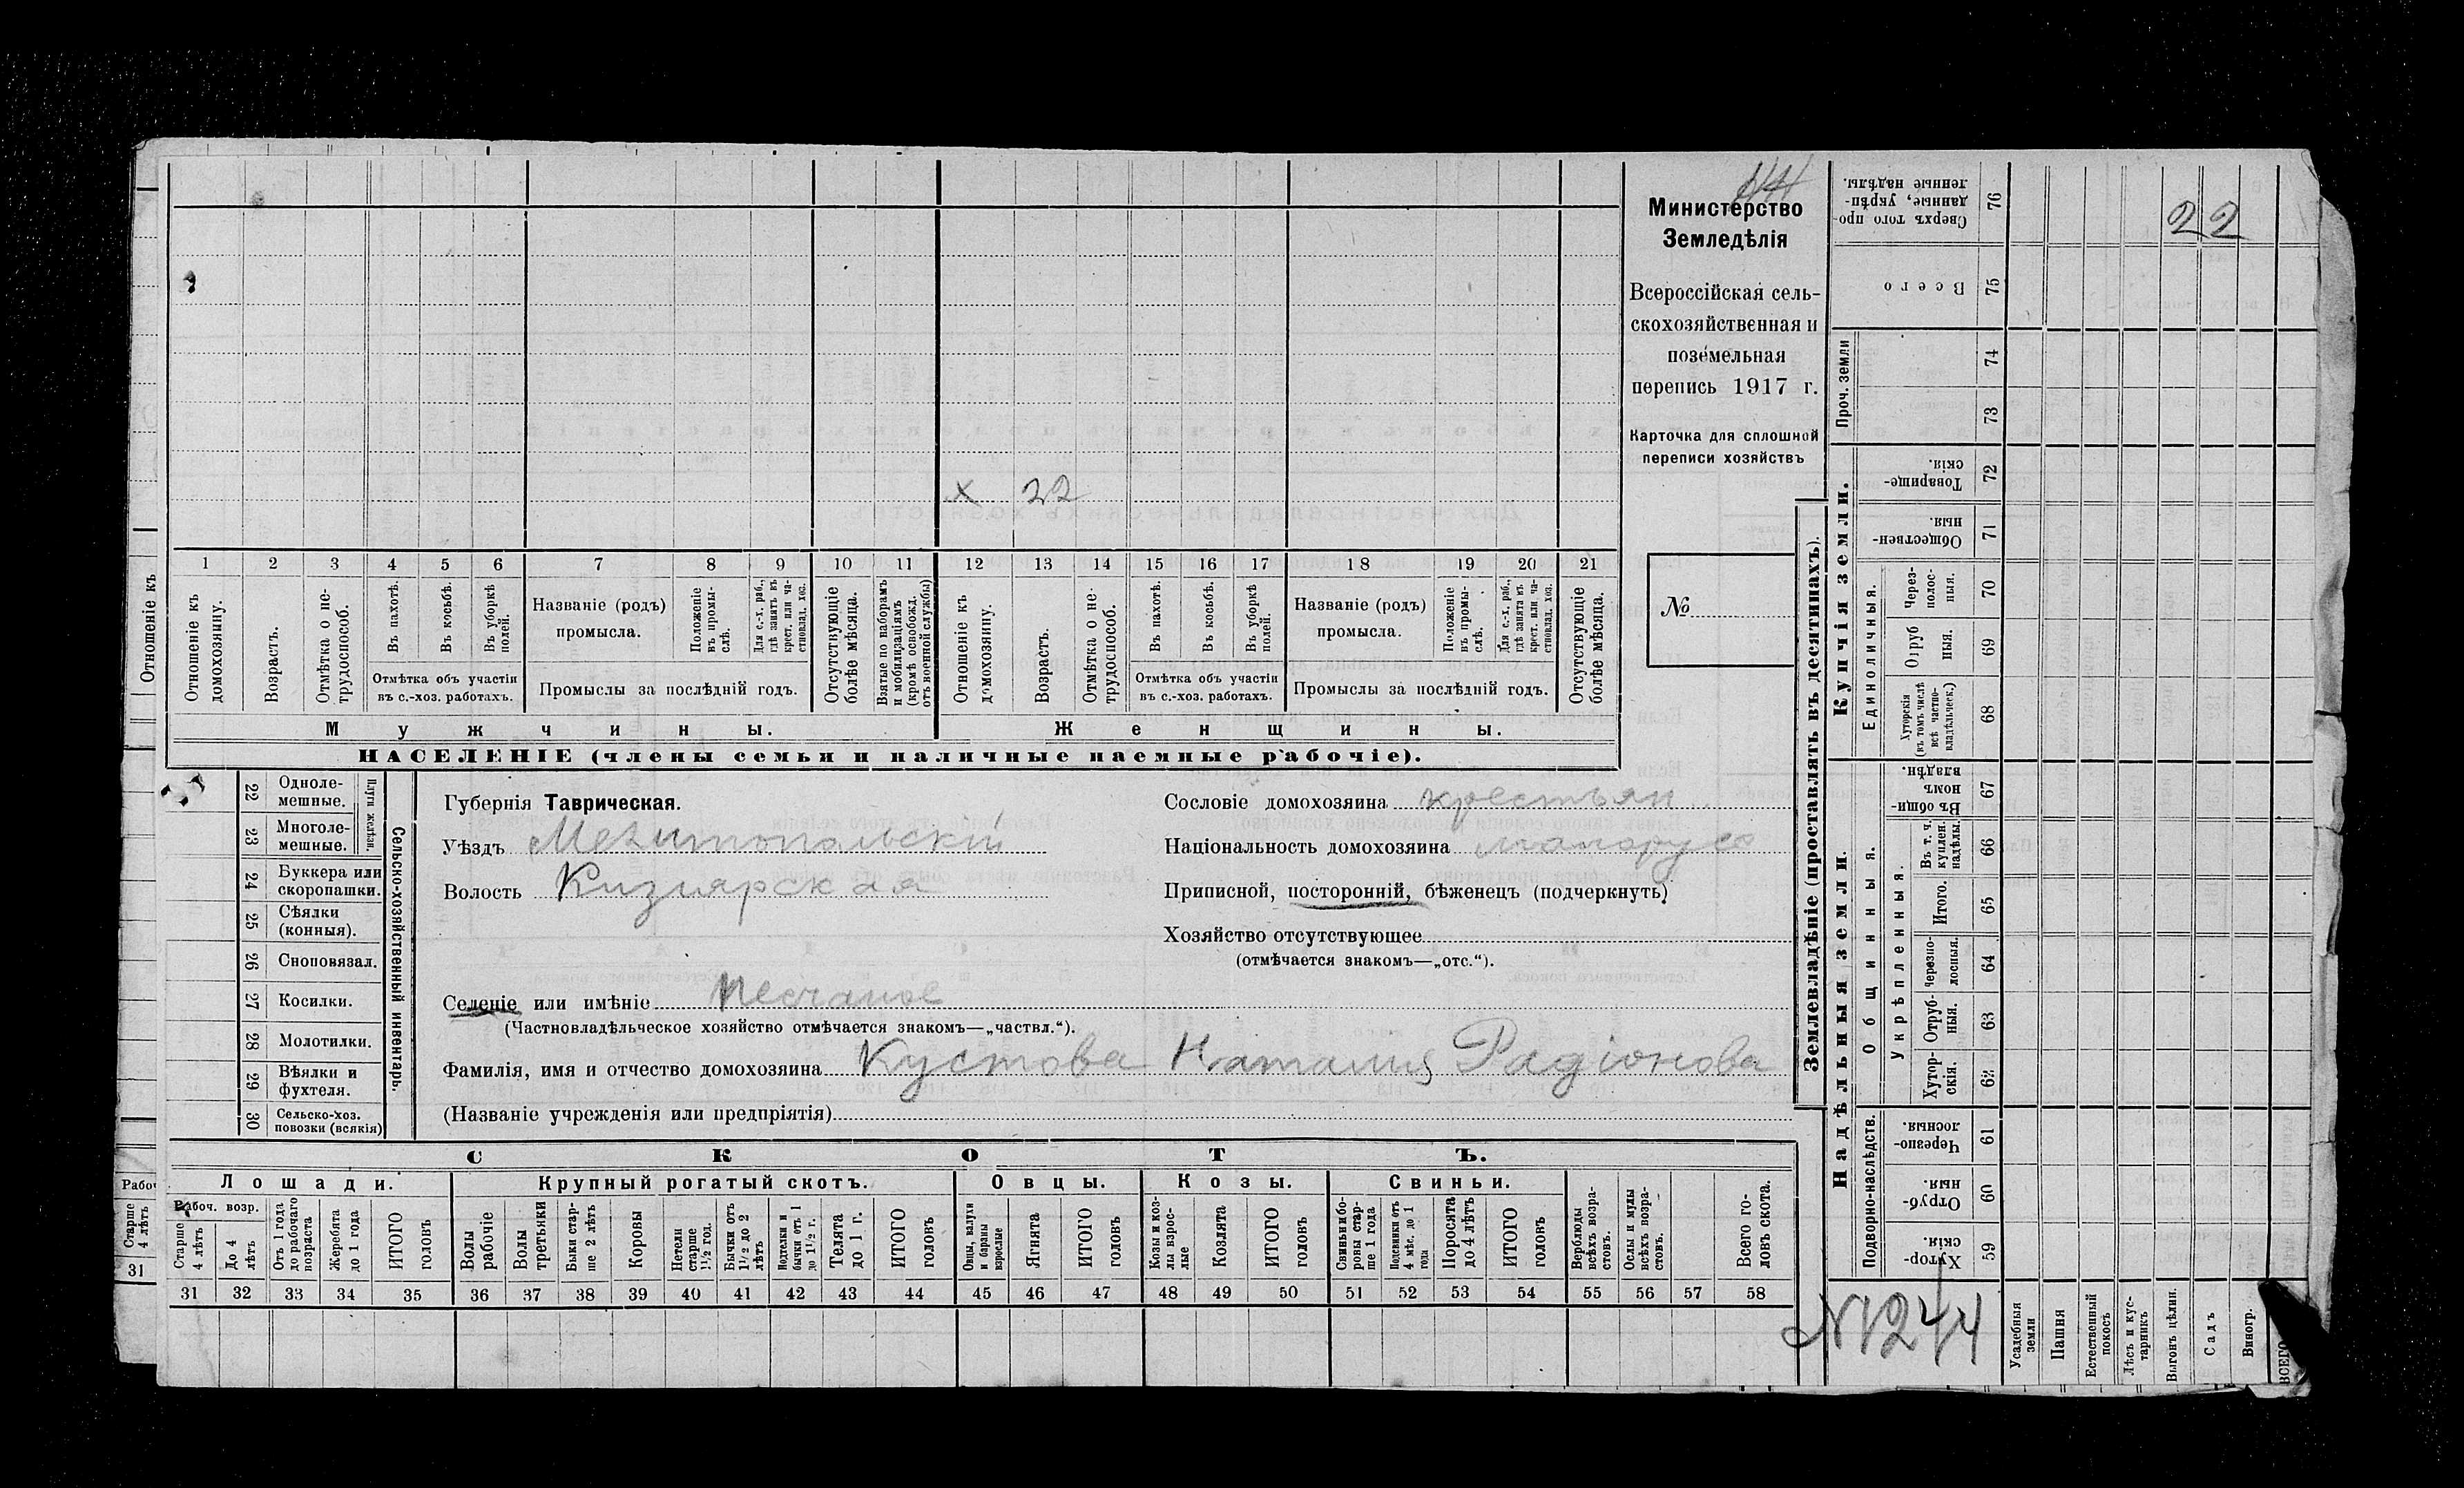 22
Министерство
Земледѣлія
Всероссійская сель-
скохозяйственная и
поземельная
перепись 1917 г.
Карточка для сплошной
переписи хозяйствъ
№
х 22
1 2 3 4 5 6 7 8 9 10 11 12 13 14 15 16 17 18 19 20 21
Отношеніе къ домохозяину.
Возрастъ.
Отмѣтка о не-трудоспособ.
Въ пахотѣ.
Въ косьбѣ.
Въ уборкѣ полей.
Отмѣтка объ участіи
въ с.-хоз. работахъ.
Названіе (родъ)
промысла.
Положеніе въ промы-слѣ.
Для с.-х. раб., гдѣ занятъ въ крест. или ча-стновлад. хоз.
Промыслы за послѣдній годъ.
Отсутствующіе болѣе мѣсяца.
Взятые по наборамъ и мобилизаціямъ (кромѣ освобожд. отъ военной службы)
Отношеніе къ домохозяину.
Возрастъ.
Отмѣтка о не-трудоспособ.
Въ пахотѣ.
Въ косьбѣ.
Въ уборкѣ полей.
Отмѣтка объ участіи
въ с.-хоз. работахъ.
Названіе (родъ)
промысла.
Положеніе въ промы-слѣ.
Для с.-х. раб., гдѣ занята въ крест. или ча-стновлад. хоз.
Промыслы за послѣдній годъ.
Отсутствующіе болѣе мѣсяца.
Мужчины. Женщины.
НАСЕЛЕНІЕ (члены семьи и наличные наемные рабочіе).
Отношеніе къ
22 Одноле-мешные.
23 Многоле-мешные.
Плуги желѣзн.
24 Буккера или скоропашки.
25 Сѣялки (конныя).
26 Сноповязал.
27 Косилки.
28 Молотилки.
29 Вѣялки и фухтеля.
30 Сельско-хоз. повозки (всякія)
Сельско-хозяйственный инвентарь.
Губернія Таврическая.
Уѣздъ Мелитопольскій
Волость Кизиярская
Сословіе домохозяина крестьян
Національность домохозяина малорусс
Приписной, посторонній, бѣженецъ (подчеркнуть)
Хозяйство отсутствующее
(отмѣчается знакомъ—„отс.“).
Селеніе или имѣніе Песчаное
(Частновладѣльческое хозяйство отмѣчается знакомъ—„частвл.“).
Фамилія, имя и отчество домохозяина Кустова Наталия Радіонова
(Названіе учрежденія или предпріятія)
СКОТЪ.
Лошади. Крупный рогатый скотъ. Овцы. Козы. Свиньи.
Рабоч. возр.
Старше 4 лѣтъ
До 4 лѣтъ
Отъ 1 года до рабочаго возраста
Жеребята до 1 года
ИТОГО головъ
Волы рабочіе
Волы третьяки
Быки стар-ше 2 лѣтъ
Коровы
Нетели старше 1½ год.
Бычки отъ 1½ до 2 лѣтъ
Подтелки и бычки отъ 1 до 1½ г.
Телята до 1 г.
ИТОГО головъ
Овцы, валухи и бараны взрослые
Ягнята
ИТОГО головъ
Козы и коз-лы взрос-лые
Козлята
ИТОГО головъ
Свиньи бо-ровы стар-ше 1 года
Подсвинки отъ 4 мѣс. до 1 года
Поросята до 4 лѣтъ
ИТОГО головъ
Верблюды всѣхъ возра-стовъ.
Ослы и мулы всѣхъ возра-стовъ.
Всего го-ловъ скота.
31 32 33 34 35 36 37 38 39 40 41 42 43 44 45 46 47 48 49 50 51 52 53 54 55 56 57 58
Рабоч
Старше 4 лѣтъ
31
Землевладѣніе (проставлять въ десятинахъ).
Сверхъ того про-данные, укрѣп-ленные надѣлы. 76
Всего 75
Проч. земли 74 73
Купчія земли.
Товарище-скія. 72
Обществен-ныя. 71
Единоличныя.
Через-полос-ныя. 70
Отруб ныя. 69
Хуторскія (въ томъ числѣ всѣ частно-владѣльческ.) 68
Надѣльныя земли.
Общинныя.
Въ общи-номъ владѣн. 67
Укрѣпленныя.
Въ т. ч. куплен. надѣлы. 66
Итого. 65
Черезпо-лосныя. 64
Отруб-ныя. 63
Хутор-скія. 62
Подворно-наслѣдств.
Черезпо-лосныя. 61
Отруб-ныя. 60
Хутор-скія. 59
№1244
Усадебныя земли
Пашня
Естественный покосъ
Лѣсъ и кус-тарникъ
Выгонъ цѣлин.
Садъ
Виногр.
ВСЕГО